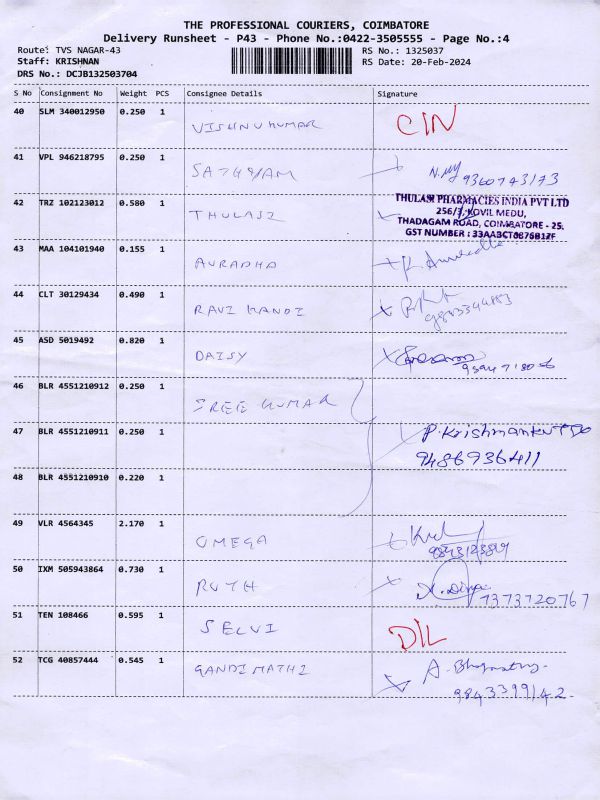 THE PROFESSIONAL COURIERS, COIMBATORE
Delivery Runsheet - P43 - Phone No.:0422-3505555 - Page No.:4
Route: TVS NAGAR-43 RS No.: 1325037
Staff: KRISHNAN RS Date: 20-Feb-2024
DRS No.: DCJB132503704
S No Consignment No Weight PCS Consignee Details Signature
40 SLM 340012950 0.250 1 VISHNUKUMAR C/N
41 VPL 946218795 0.250 1 9360743173
42 TRZ 102123012 0.580 1 THULASI
THULASI PHARMACIES INDIA PVT LTD
256/3, KOVIL MEDU,
THADAGAM ROAD, COIMBATORE - 25.
GST NUMBER : 33AABCT0876B1ZF
43 MAA 104101940 0.155 1 ANRADHA
44 CLT 30129434 0.490 1 RAVI NANDI
45 ASD 5019492 0.820 1 DAISY
46 BLR 4551210912 0.250 1 SREE KUMAR
47 BLR 4551210911 0.250 1 P. Krishnankutty
9486936411
48 BLR 4551210910 0.220 1
49 VLR 4564345 2.170 1 OMEGA
50 IXM 505943864 0.730 1 RUTH
7373720767
51 TEN 108466 0.595 1 SELVI D/L
52 TCG 40857444 0.545 1 GANDIMATHI
9843399142